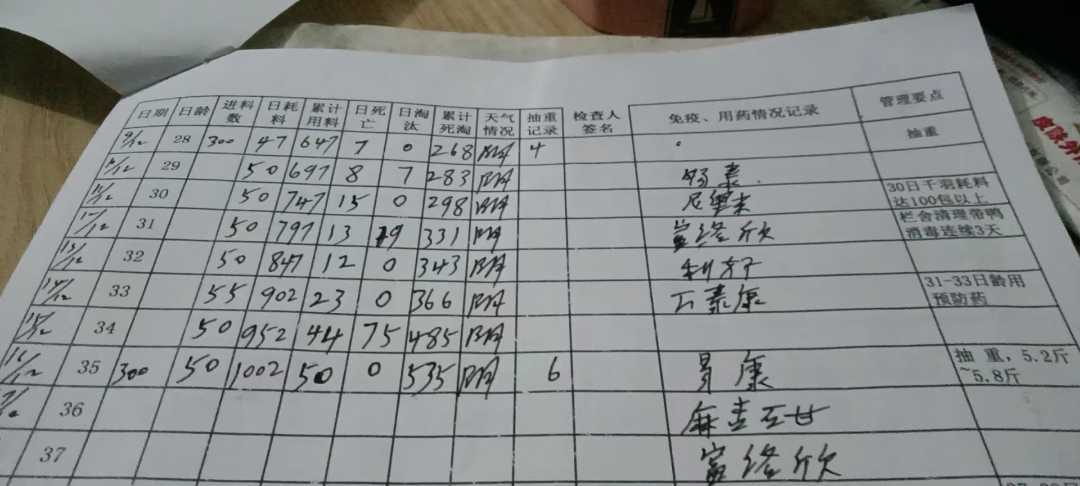 日期 日龄 进料数 日耗料 累计用料 日死亡 日淘汰 累计死淘 天气情况 抽重记录 检查人签名 免疫、用药情况记录 管理要点
9/12 28 300 47 647 7 0 268 阴 4 抽重
29 50 697 8 7 283 阴
30 50 747 15 0 298 阴 30日千羽耗料达100包以上
31 50 797 13 331 阴 富络欣 栏舍清理带鸭消毒连续3天
13/12 32 50 847 12 0 343 阴
14/12 33 55 902 23 0 366 阴 31-33日龄用预防药
15/12 34 50 952 44 75 485 阴
16/12 35 300 50 1002 50 0 535 阴 6 胃康 抽重，5.2斤~5.8斤
36 麻杏石甘
37 富络欣